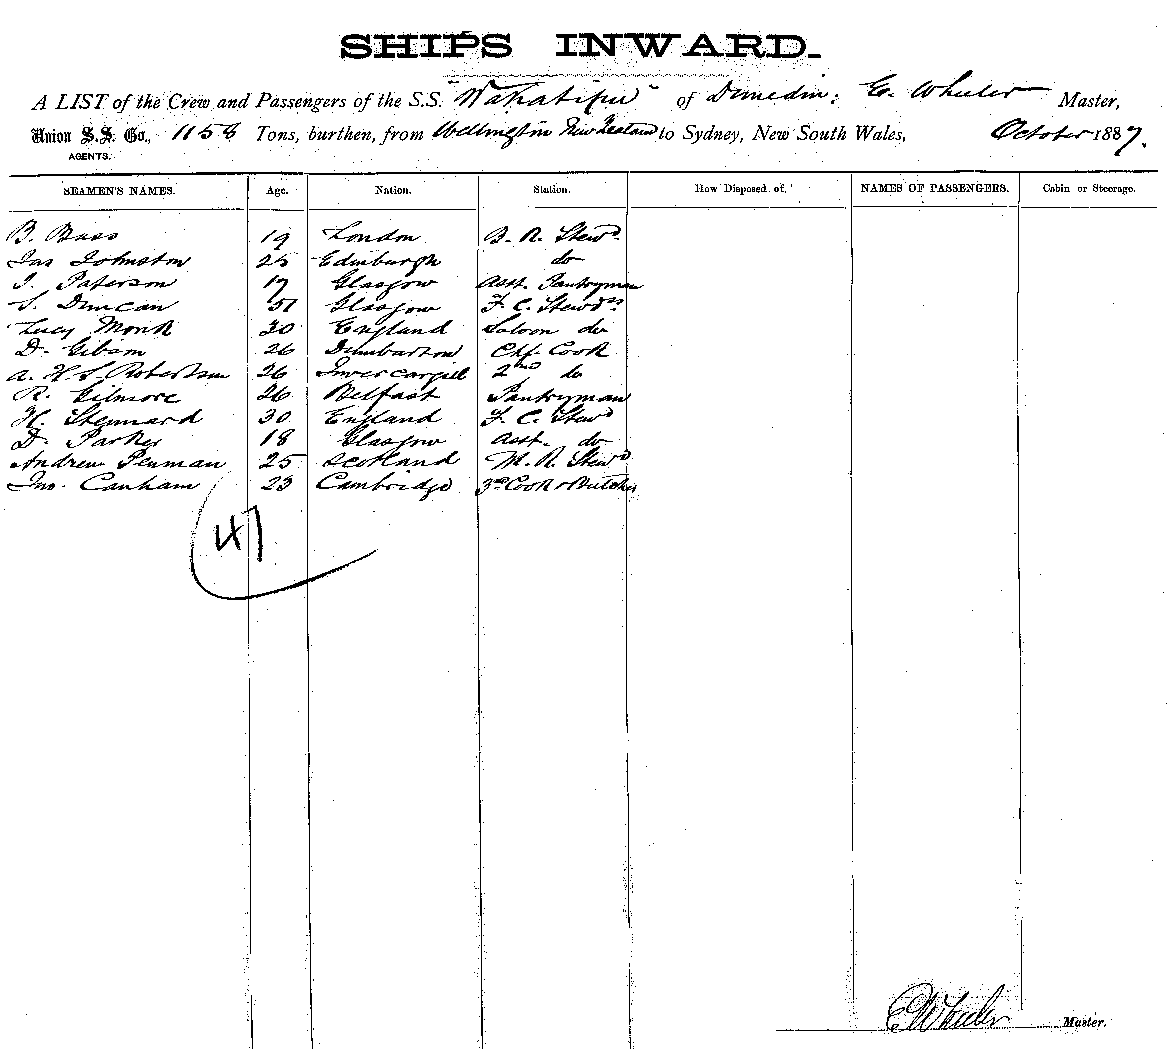 SHIPS INWARD.
A LIST of the Crew and Passengers of the S.S. "Wakatipu" of Dunedin: E. Wheeler Master,
Union S.S. Co., 1158 Tons, burthen, from Wellington New Zealand to Sydney, New South Wales, October 1887.
AGENTS.
SEAMEN'S NAMES. Age. Nation. Station. How Disposed of. NAMES OF PASSENGERS. Cabin or Steerage.
B. Bass 19 London B. R. Stewd
Jas Johnston 25 Edinburgh do
J. Paterson 17 Glasgow Asst. Pantryman
S. Duncan 51 Glasgow F. C. Stewdss
Lucy Monk 30 England Saloon do
D. Gibson 26 Dumbarton Chf. Cook
A. H. S. Robertson 26 Invercargill 2nd do
R. Gilmore 26 Belfast Pantryman
H. Stennard 30 England F. C. Stewd
D. Parker 18 Glasgow Asst. do
Andrew Penman 25 Scotland M. R. Stewd
Jno. Canham 23 Cambridge 3rd Cook & Butcher
47
E Wheeler Master.